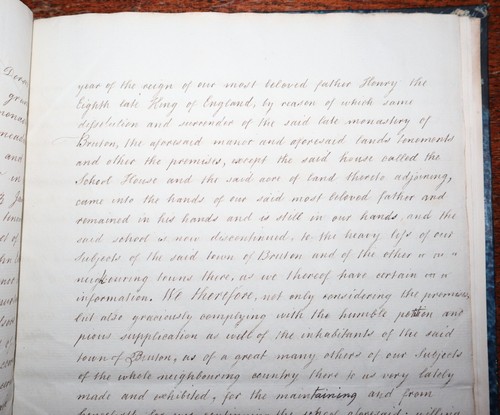 year of the reign of our most beloved father Henry the
Eighth late King of England, by reason of which same
dissolution and surrender of the said late monastery of
Bruton, the aforesaid manor and aforesaid lands tenements
and other the premises, except the said house called the
School House and the said acre of land thereto adjoining,
came into the hands of our said most beloved father and
remained in his hands and is still in our hands, and the
said school is now discontinued, to the heavy loss of our
Subjects of the said town of Bruton and of the other
neighbouring towns there, as we thereof have certain
information. We therefore, not only considering the premises,
but also graciously complying with the humble petition and
pious supplication as well of the inhabitants of the said
town of Bruton, as of a great many others of our Subjects
of the whole neighbouring country there to us very lately
made and exhibited, for the maintaining and from